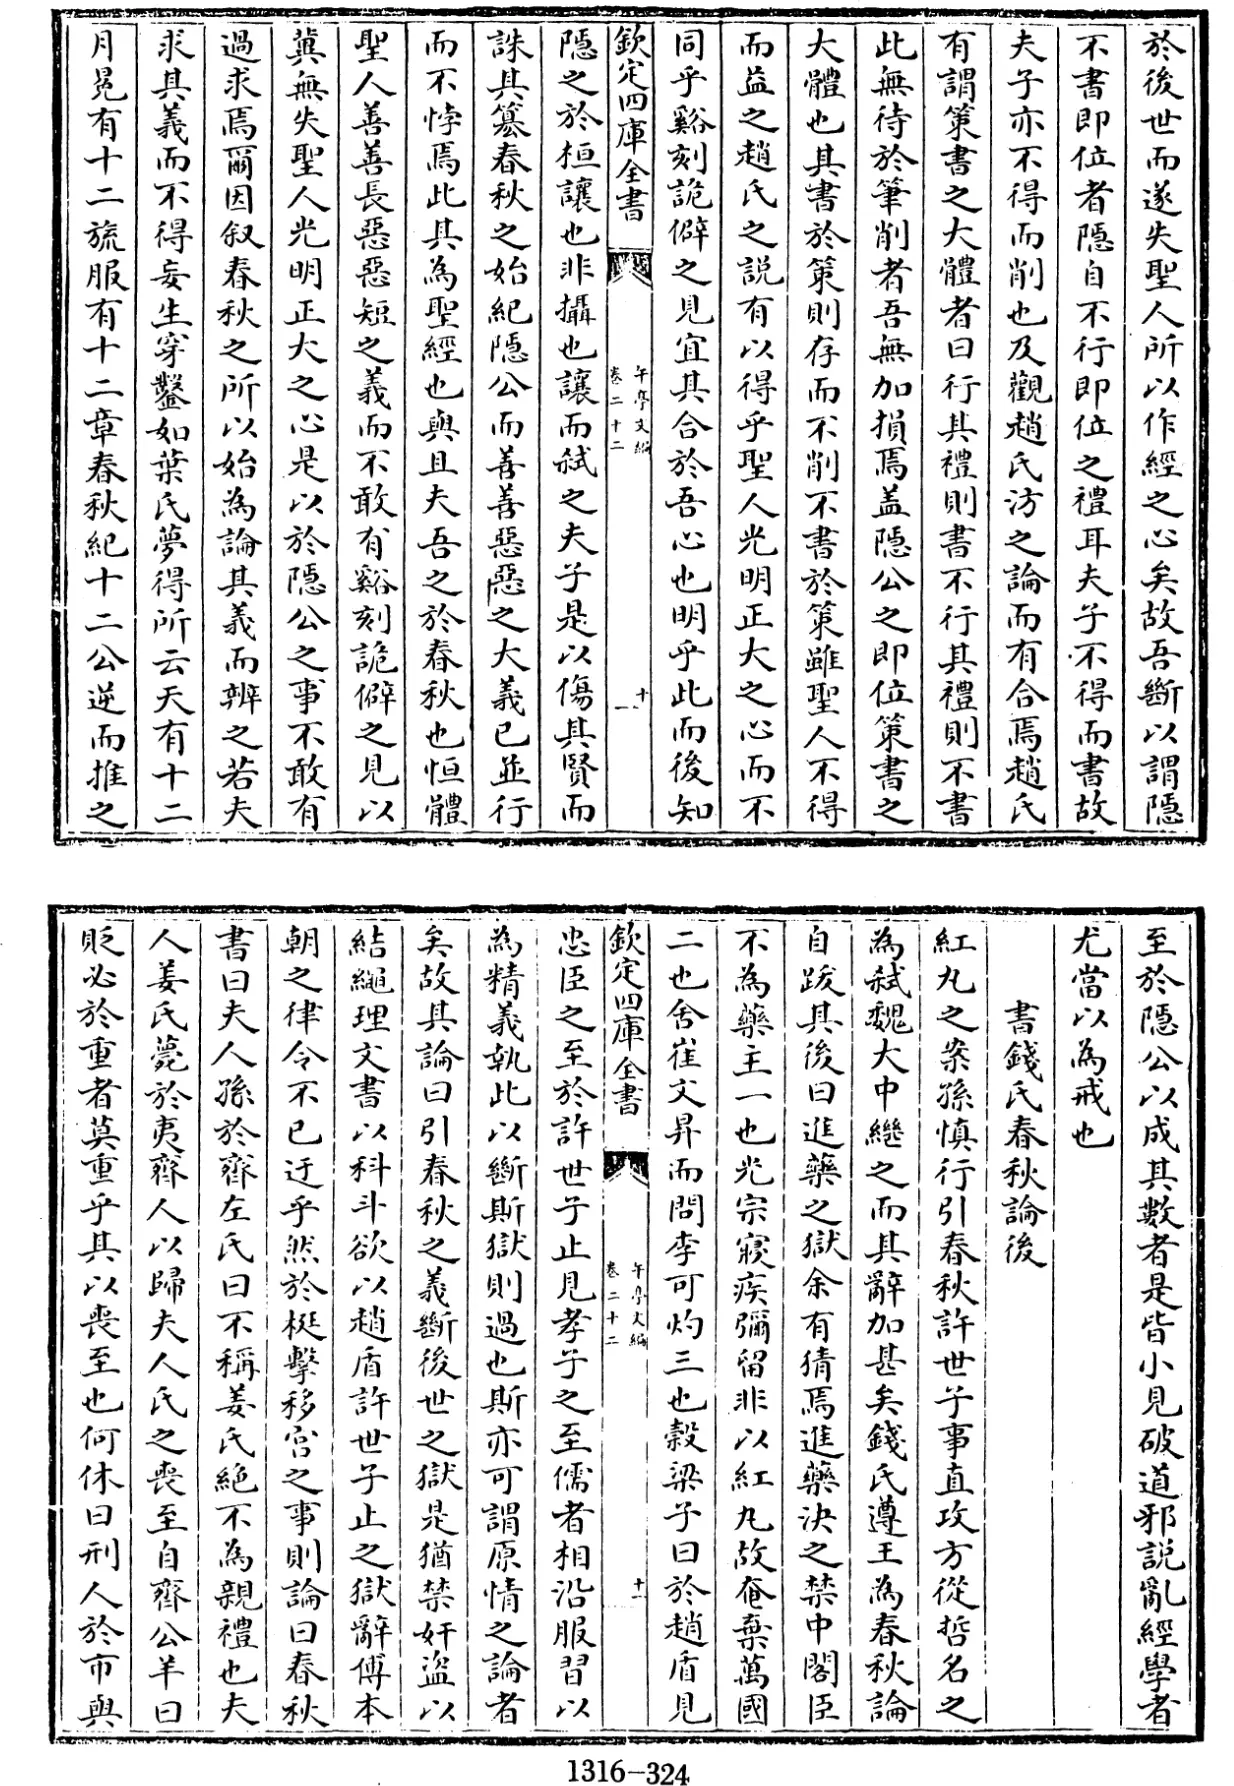 於後世而遂失聖人所以作經之心矣故吾斷以謂隱
不書即位者隱自不行即位之禮耳夫子不得而書故
夫子亦不得而削也及觀趙氏汸之論而有合焉趙氏
有謂策書之大體者曰行其禮則書不行其禮則不書
此無待於筆削者吾無加損焉盖隱公之即位策書之
大體也其書於策則存而不削不書於策雖聖人不得
而益之趙氏之説有以得乎聖人光明正大之心而不
同乎谿刻詭僻之見宜其合於吾心也明乎此而後知
欽定四庫全書
午亭文編
卷二十二
十一
隱之於桓讓也非攝也讓而弑之夫子是以傷其賢而
誅其簒春秋之始紀隱公而善善惡惡之大義已並行
而不悖焉此其為聖經也與且夫吾之於春秋也恒體
聖人善善長惡惡短之義而不敢有谿刻詭僻之見以
冀無失聖人光明正大之心是以於隱公之事不敢有
過求焉爾因叙春秋之所以始為論其義而辨之若夫
求其義而不得妄生穿鑿如葉氏夢得所云天有十二
月冕有十二旒服有十二章春秋紀十二公逆而推之
至於隱公以成其數者是皆小見破道邪説亂經學者
尤當以為戒也
書錢氏春秋論後
紅丸之案孫慎行引春秋許世子事直攻方從哲名之
為弑魏大中繼之而其辭加甚矣錢氏遵王為春秋論
自跋其後曰進藥之獄余有猜焉進藥決之禁中閣臣
不為藥主一也光宗寢疾彌留非以紅丸故奄棄萬國
二也舍崔文昇而問李可灼三也榖梁子曰於趙盾見
欽定四庫全書
午亭文編
卷二十二
十二
忠臣之至於許世子止見孝子之至儒者相沿服習以
為精義執此以斷斯獄則過也斯亦可謂原情之論者
矣故其論曰引春秋之義斷後世之獄是猶禁奸盜以
結繩理文書以科斗欲以趙盾許世子止之獄辭傅本
朝之律令不已迂乎然於梃擊移宮之事則論曰春秋
書曰夫人孫於齊左氏曰不稱姜氏絶不為親禮也夫
人姜氏薨於夷齊人以歸夫人氏之喪至自齊公羊曰
貶必於重者莫重乎其以喪至也何休曰刑人於市與
1316-324